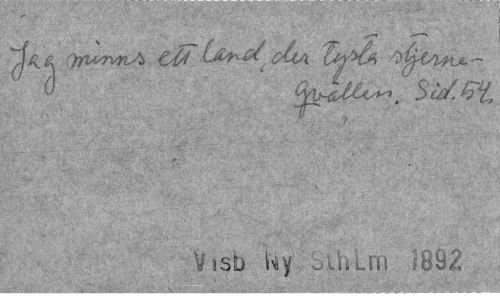 Jag minns ett land, der tysta stjerne-
qvällen. Sid. 54.
Visb Ny Sthlm 1892